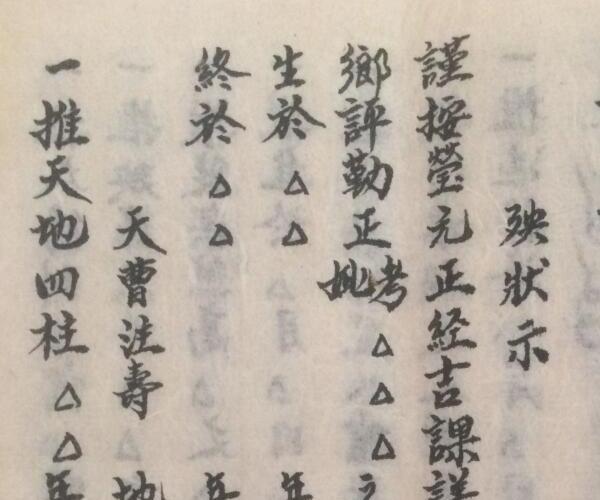 殃狀示
謹按瑩元正經吉課詳
鄉評勤正考妣△△△之
生於△△ 年
終於△△ 年
天曹注壽 地
一推天地四柱△△年